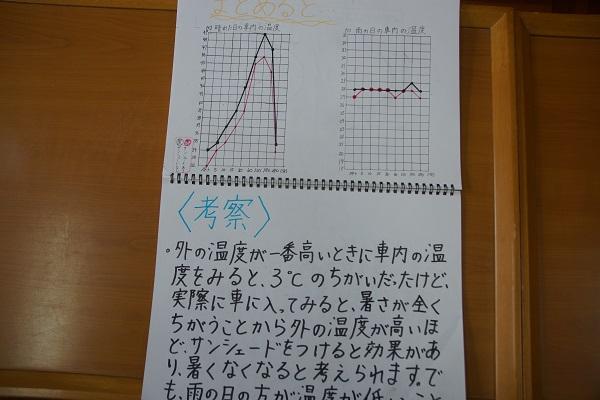 まとめると…
晴れた日の車内の温度
雨の日の車内の温度
〈考察〉
。外の温度が一番高いときに車内の温
度をみると、3℃のちがいだったけど、
実際に車に入ってみると、暑さが全く
ちがうことから外の温度が高いほ
ど、サンシェードをつけると効果があ
り、暑くなくなると考えられます。で
も、雨の日の方が温度が低いこと